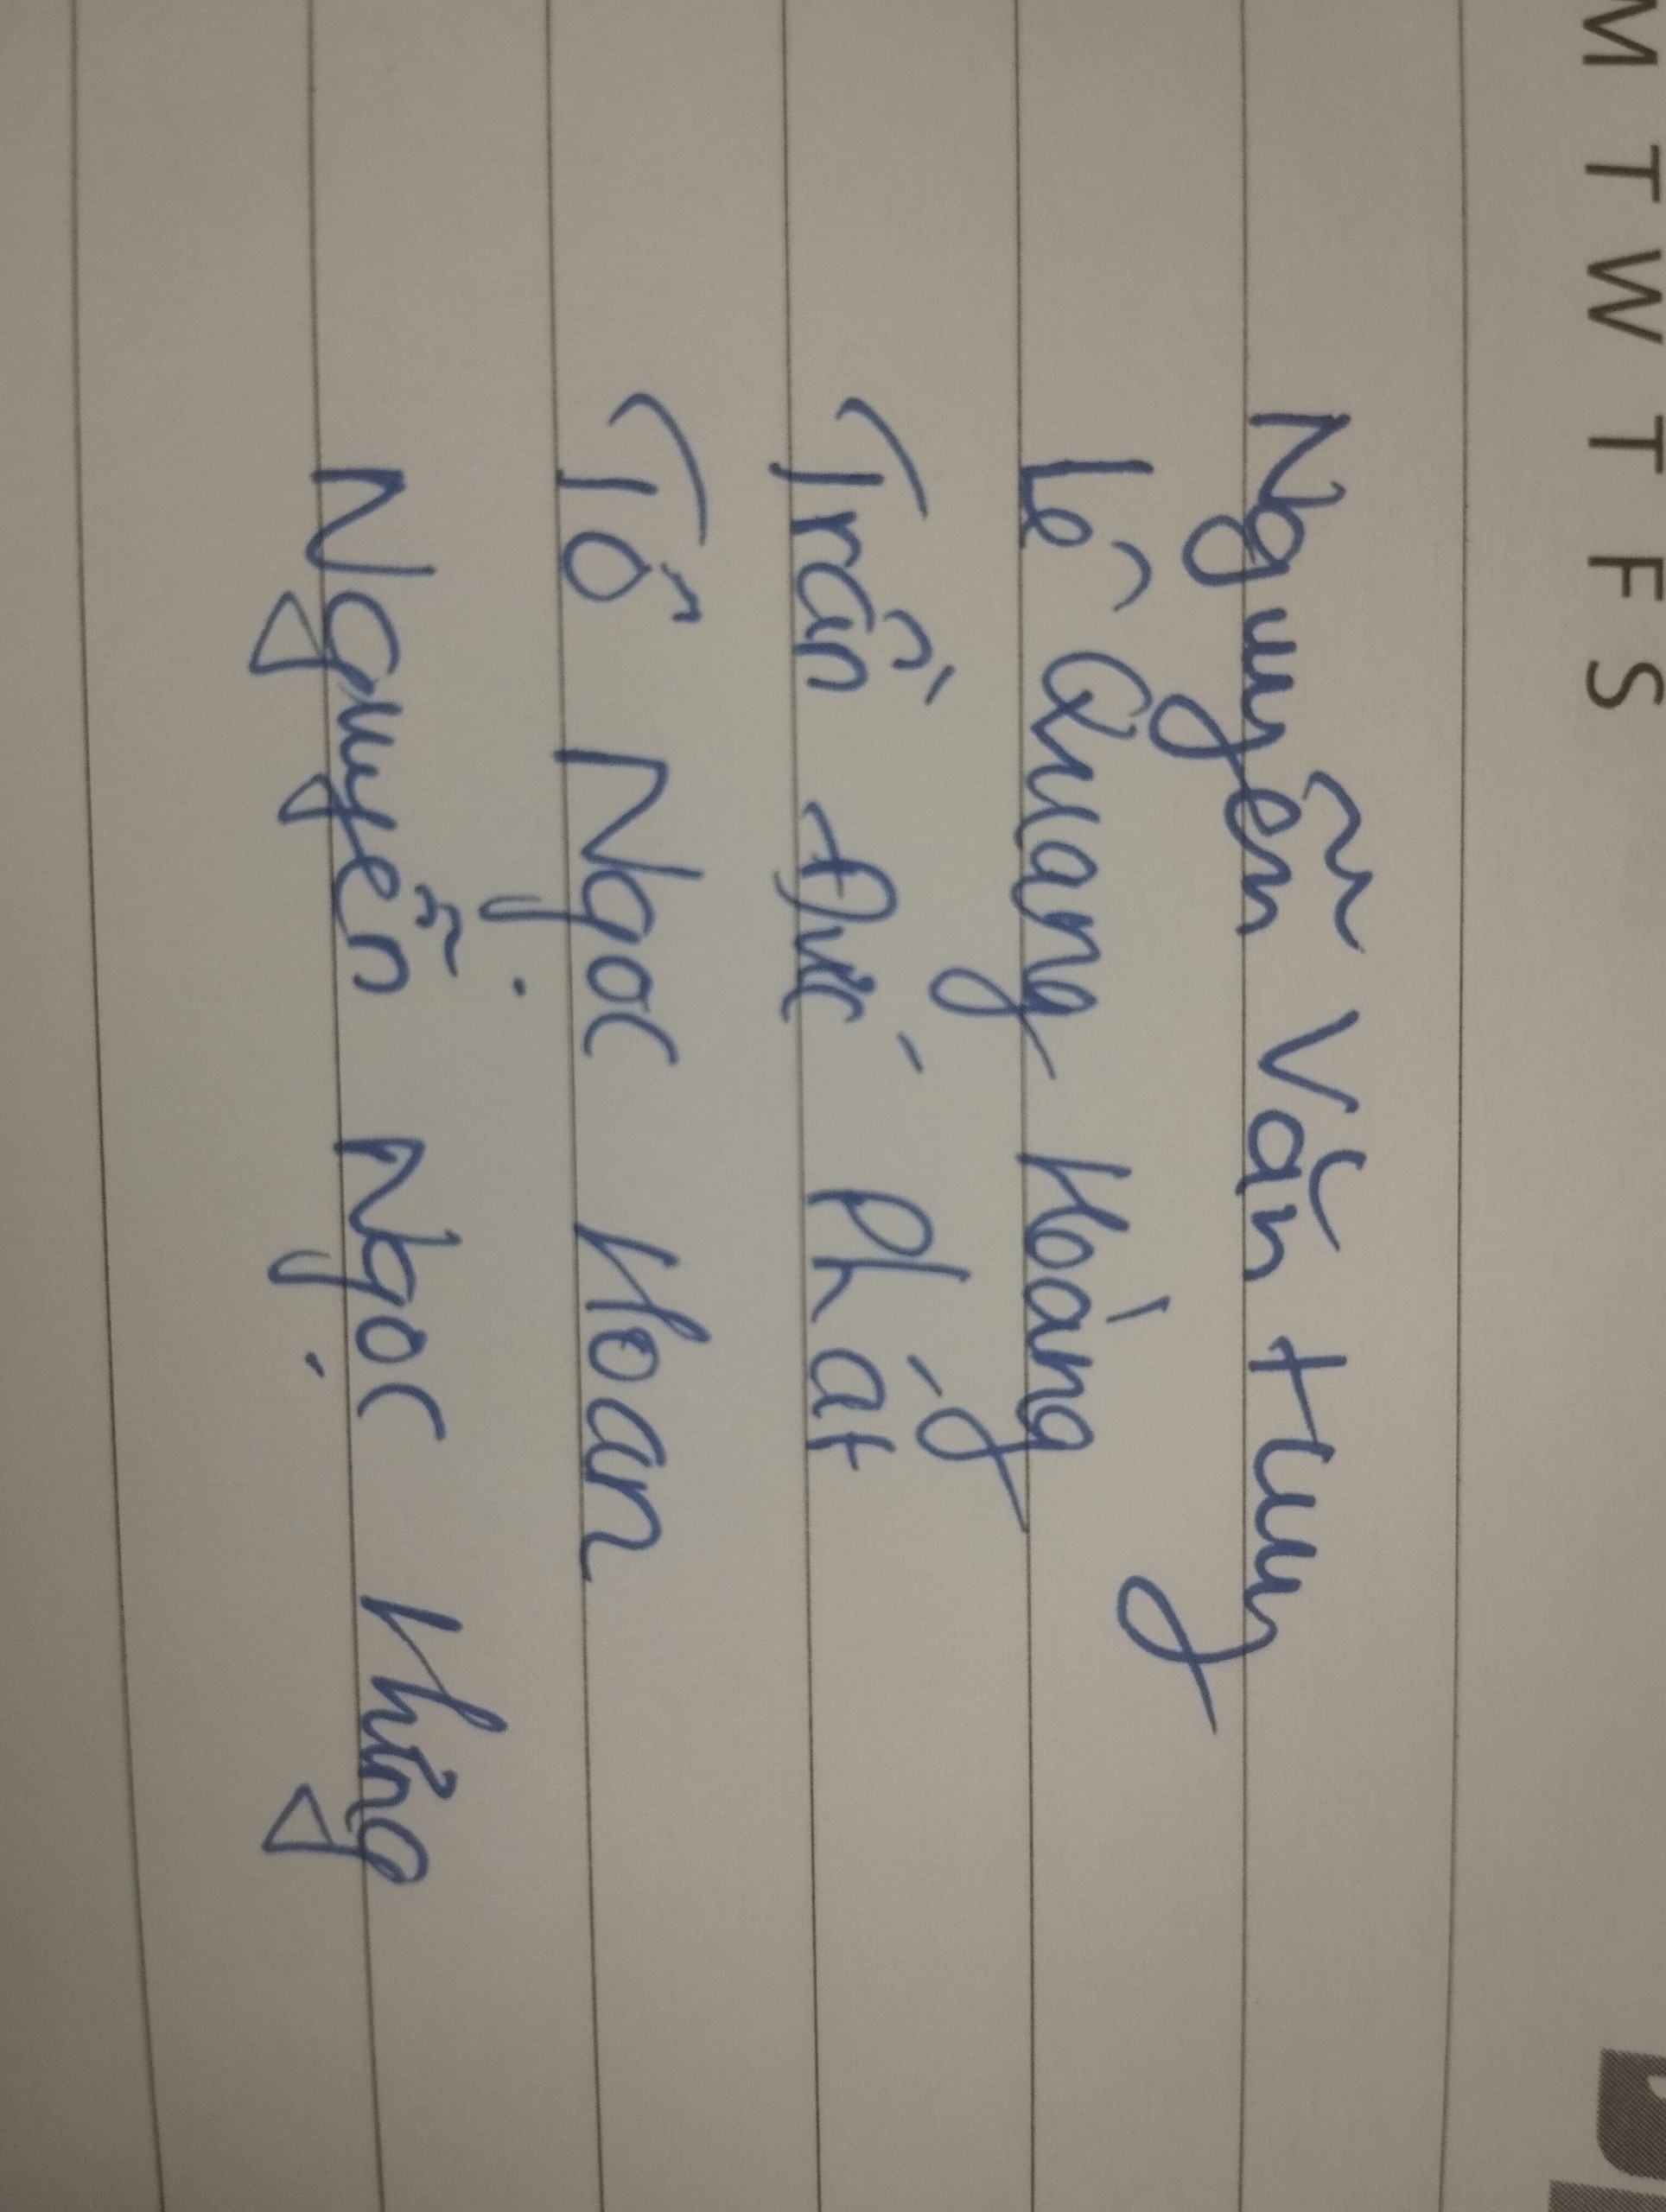 M T W T F S
Nguyễn Văn Huy
Lê Quang Hoàng
Trần Đức Phát
Tô Ngọc Hoan
Nguyễn Ngọc